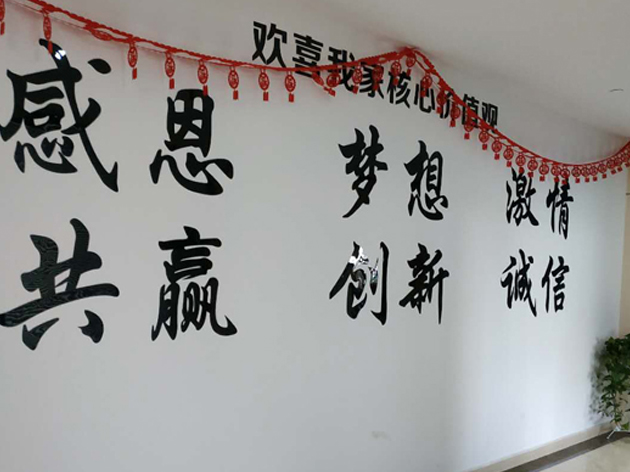 欢喜我家核心价值观
感恩 梦想 激情
共赢 创新 诚信